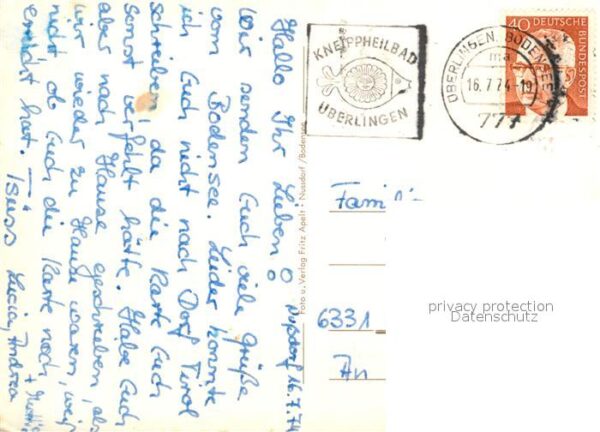 Nußdorf 16.7.74
Hallo Ihr Lieben!
Wir senden Euch viele Grüße
vom Bodensee. Leider konnte
ich Euch nicht nach Dorf Tirol
schreiben, da die Karte Euch
sonst verfehlt hätte. Habe Euch
aber nach Hause geschrieben, als
wir wieder zu Hause waren, weiß
nicht, ob Euch die Karte noch
erreicht hat. Tschüss Lucia, Andrea
Foto u. Verlag Fritz Apelt - Nussdorf/Bodensee
KNEIPPHEILBAD
ÜBERLINGEN
ÜBERLINGEN, BODENSEE
ma
16.7.74-19
777
40 DEUTSCHE
BUNDESPOST
Fami
6331
An
privacy protection
Datenschutz